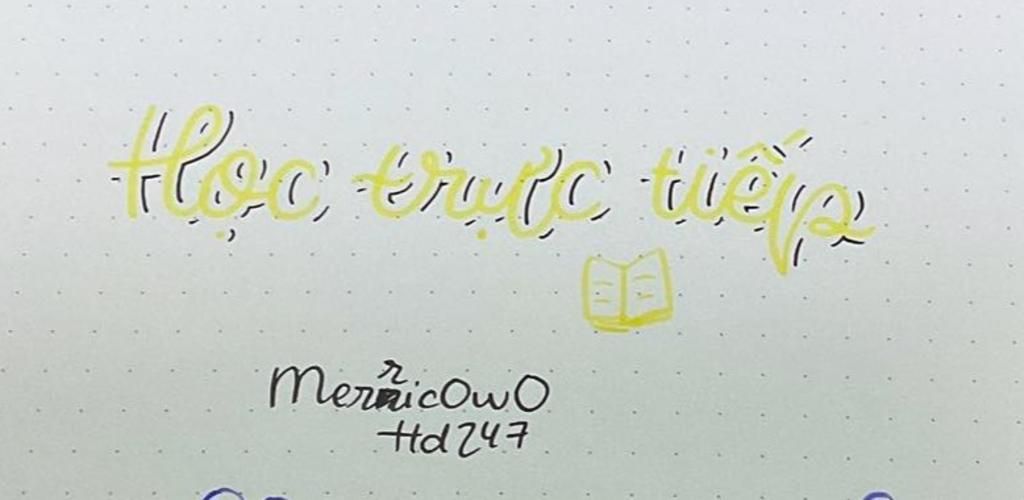 Học trực tiếp
MerricOwO
Hd247